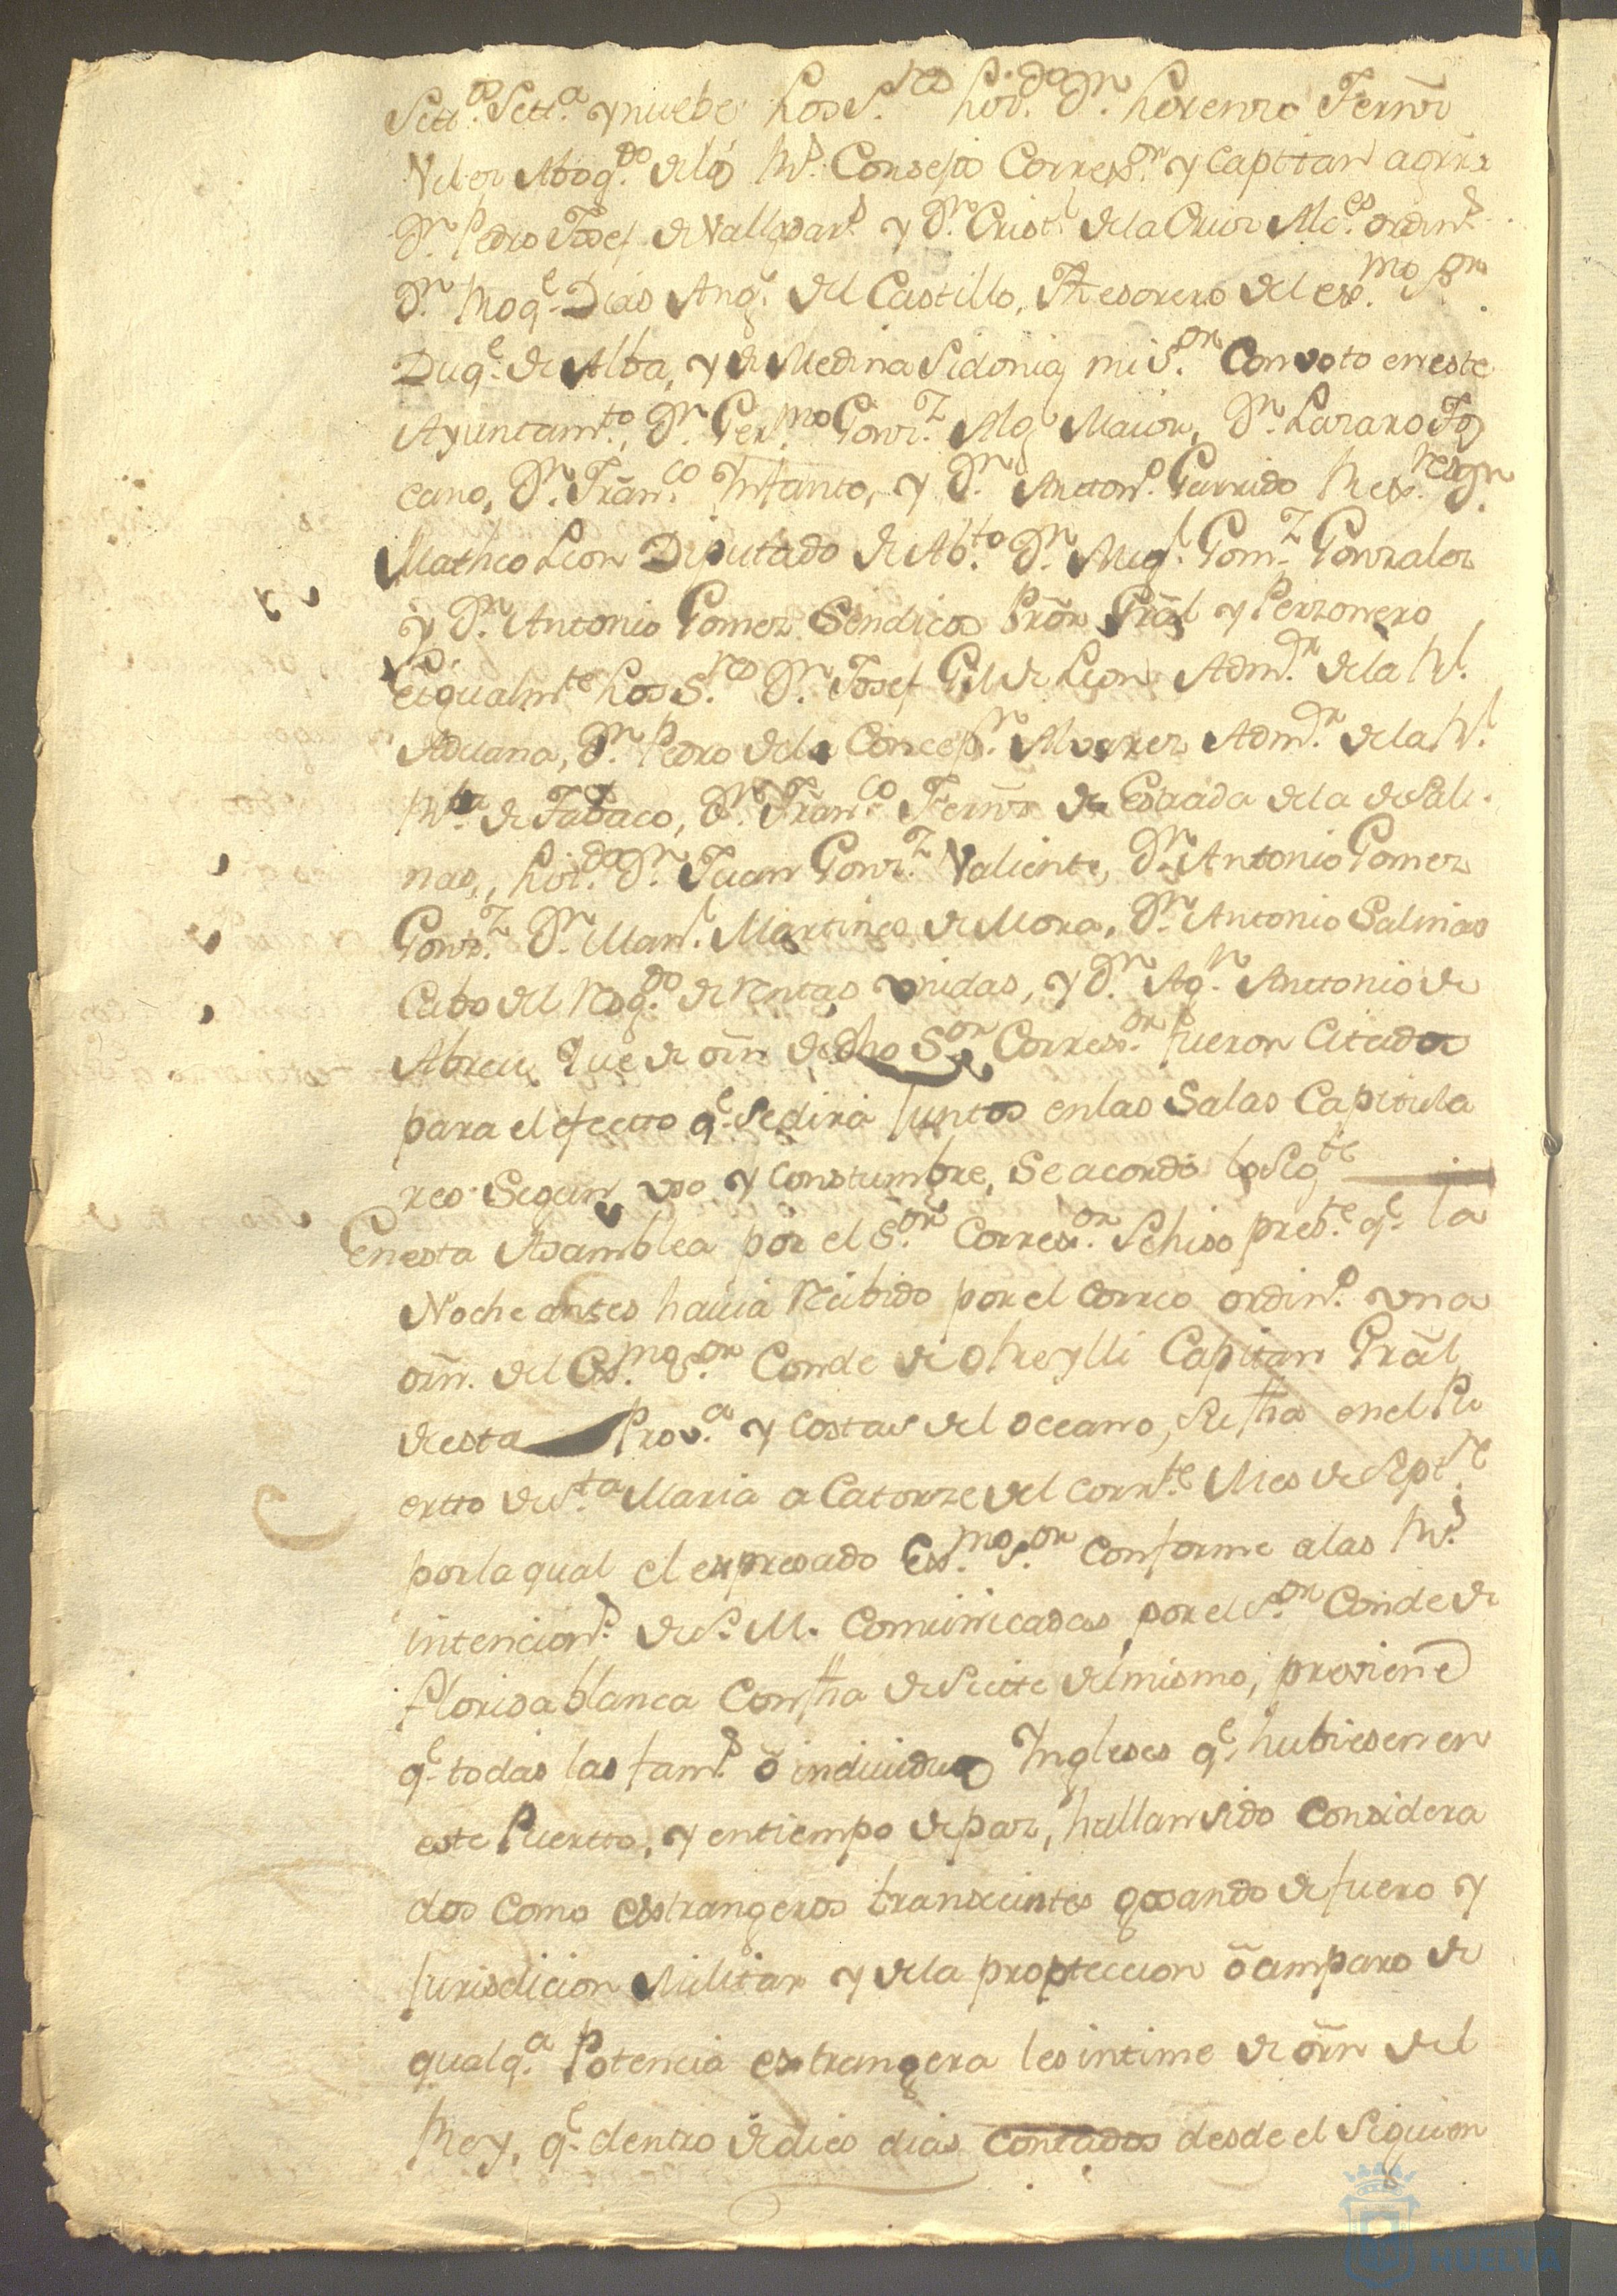 Settos. Setta. y nuebe Los S.res Lic.do Dn. Lorenzo Fernz
Velez Abog.do de los Rs. Consejos Correx.or y Capitan a grra
Dn. Pedro Josef de Vallejo y Dn. Crist.l de la Cruz Alc.es ordin.s
Dn. Roq.e Dias Ang.l del Castillo, Thesorero del ex.mo S.or
Duq.e de Alba, y de Medina Sidonia, mi S.or Con voto en este
Ayuntam.to, Dn. Ger.mo Gonz.z Alg.l Maior, Dn. Lazaro To
cano, Dn. Fran.co Infante, y Dn. Anton.o Garrido Rex.res Dn.
Matheo Leon Diputado de Ab.to Dn. Mig.l Gom.z Gonzalez
y Dn. Antonio Gomez Sindicos Prõr Grãl y Perzonero
E igualm.te Los S.res Dn. Josef Gil de Leon Adm.or de la Rl.
Aduana, Dn. Pedro de la Concep.n Alvarez Adm.or de la Rl.
R.ta de Tabaco, Dn. Fran.co Fernz de Estrada de la de Sali.
nas, Lic.do Dn. Juan Gonz.z Valiente, Dn. Antonio Gomez
Gonz.z Dn. Man.l Martines de Mora, Dn. Antonio Salinas
Cabo del Resg.do de Rentas unidas, y Dn. Ag.n Anttonio de
Abreu, Que de orñ de dho S.or Correx.or fueron Citados
para el efecto q.e se dira Juntos en las Salas Capitula
res Segun uso y Constumbre, Se acordó lo Sig.te
En esta Asamblea por el S.or Correx.or Se hiso pres.te q.e la
Noche antes havia Recibido por el Correo ordin.o una
orñ. del Ex.mo S.or Conde de O Reylli Capitan Grãl
de esta Prov.a y Costas del Oceano, Su fha en el Pu
ertto de S.ta Maria a Catorze del corr.te Mes de Sept.re
por la qual el expresado Ex.mo S.or Conforme a las Rs.
intencion.s de S. M. Comunicadas por el S.or Conde de
Floridablanca Con fha de Siete del mismo, previene
q.e todas las fam.s ó individuos Ingleses q.e hubiesen en
este Puertto, y en tiempo de paz, hallan sido Considera
dos como extrangeros transeuntes gosando de fuero y
Jurisdicion Militar y de la propteccion ó amparo de
qualq.a Potencia extrangera les intime de orñ del
Rey, q.e dentro de dies dias contados desde el Siguien
HUELVA